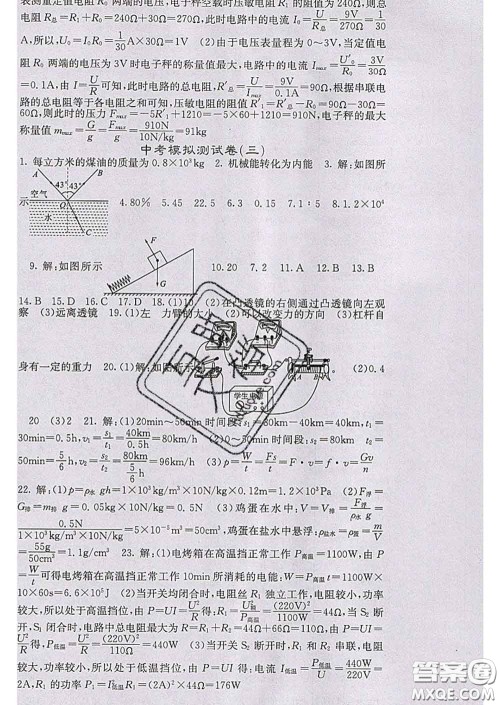 表测量定值电阻 R₀ 两端的电压,电子秤空载时压敏电阻 R₁ 的阻值为 240Ω,则总
电阻 R总=R₁+R₀=240Ω+30Ω=270Ω,此时电路中的电流 I=U/R总=9V/270Ω=1/30
A,所以,U₀=I₀R₀=1/30A×30Ω=1V (2)由于电压表量程为 0~3V,当定值电
阻 R₀ 两端的电压为 3V 时电子秤的称量值最大,电路中的电流 Imax=U′₀/R₀=3V/30Ω
=0.1A,由 I=U/R可知,此时的总电阻 R′总=U/Imax=9V/0.1A=90Ω,根据串联电
路的总电阻等于各电阻之和可知,压敏电阻的阻值 R′₁=R′总-R₀=90Ω-30Ω=
60Ω,则此时的压力 F=-5R′₁+1210=-5×60+1210=910N,电子秤的最大
称量值 mmax=G/g=F/g=910N/10N/kg=91kg
中考模拟测试卷(三)
1. 每立方米的煤油的质量为 0.8×10³kg 2. 机械能转化为内能 3. 解:如图所
A B 43° 43° 空气 O 水 C
示 4.80% 5.45 22.5 6.3 0.15 7.1:5 8.1.2×10⁴
9. 解:如图所示 F G 10.20 7.2 11.A 12.B 13.B
14.B 15.D 16.C 17.D 18.(1)10 (2)在凸透镜的右侧通过凸透镜向左观
察 (3)远离透镜 19.(1)左 力臂的大小 (2)可以改变力的方向 (3)杠杆自
身有一定的重力 20.(1)解:如图所示 学生电源 A B (2)0.4
20 (3)2 21. 解:(1)20min~50min 时间段:s₁=80km-40km=40km,t₁=
30min=0.5h,v₁=s₁/t₁=40km/0.5h=80km/h (2)0~50min 时间段:s₂=80km t₂=
50min=5/6h v₂=s₂/t₂=80km/5/6h=96km/h (3)P=W/t=Fs/t=F·v=Gv/n
22. 解:(1)p=ρ水gh=1×10³kg/m³×10N/kg×0.12m=1.2×10³Pa (2)F浮=
G排=m排g=0.05kg×10N/kg=0.5N (3)鸡蛋在水中:V=V排=F浮/ρ水g=
0.5N/1×10³kg/m³×10N/kg=5×10⁻⁵m³=50cm³,鸡蛋在盐水中悬浮:ρ盐水=m/V
=55g/50cm³=1.1g/cm³ 23. 解:(1)电烤箱在高温挡正常工作 P高温=1100W,由 P=
W/t可得电烤箱在高温挡正常工作 10min 所消耗的电能:W=P高温t=1100W×
10×60s=6.6×10⁵J (2)当开关均闭合时,电阻丝 R₁ 独立工作,电阻小,功率
较大,所以处于高温挡位,由 P=UI=U²/R得:R₁=U²/P高温=(220V)²/1100W=44Ω,当 S₂ 断
开、S₁ 闭合时,电路中总电阻最大为 R=R₁+R₂=44Ω+66Ω=110Ω,由 P=UI=
U²/R得:P低温=U²/R=(220V)²/110Ω=440W (3)当开关 S₂ 断开时,R₁ 和 R₂ 串联,电阻
较大,功率较小,所以处于低温挡位,由 P=UI得:电流 I低温=P低温/U=440W/220V=
2A,R₁ 的功率 P₁=I²低温R₁=(2A)²×44Ω=176W
作业帮文档
答案圈
MXQE.COM